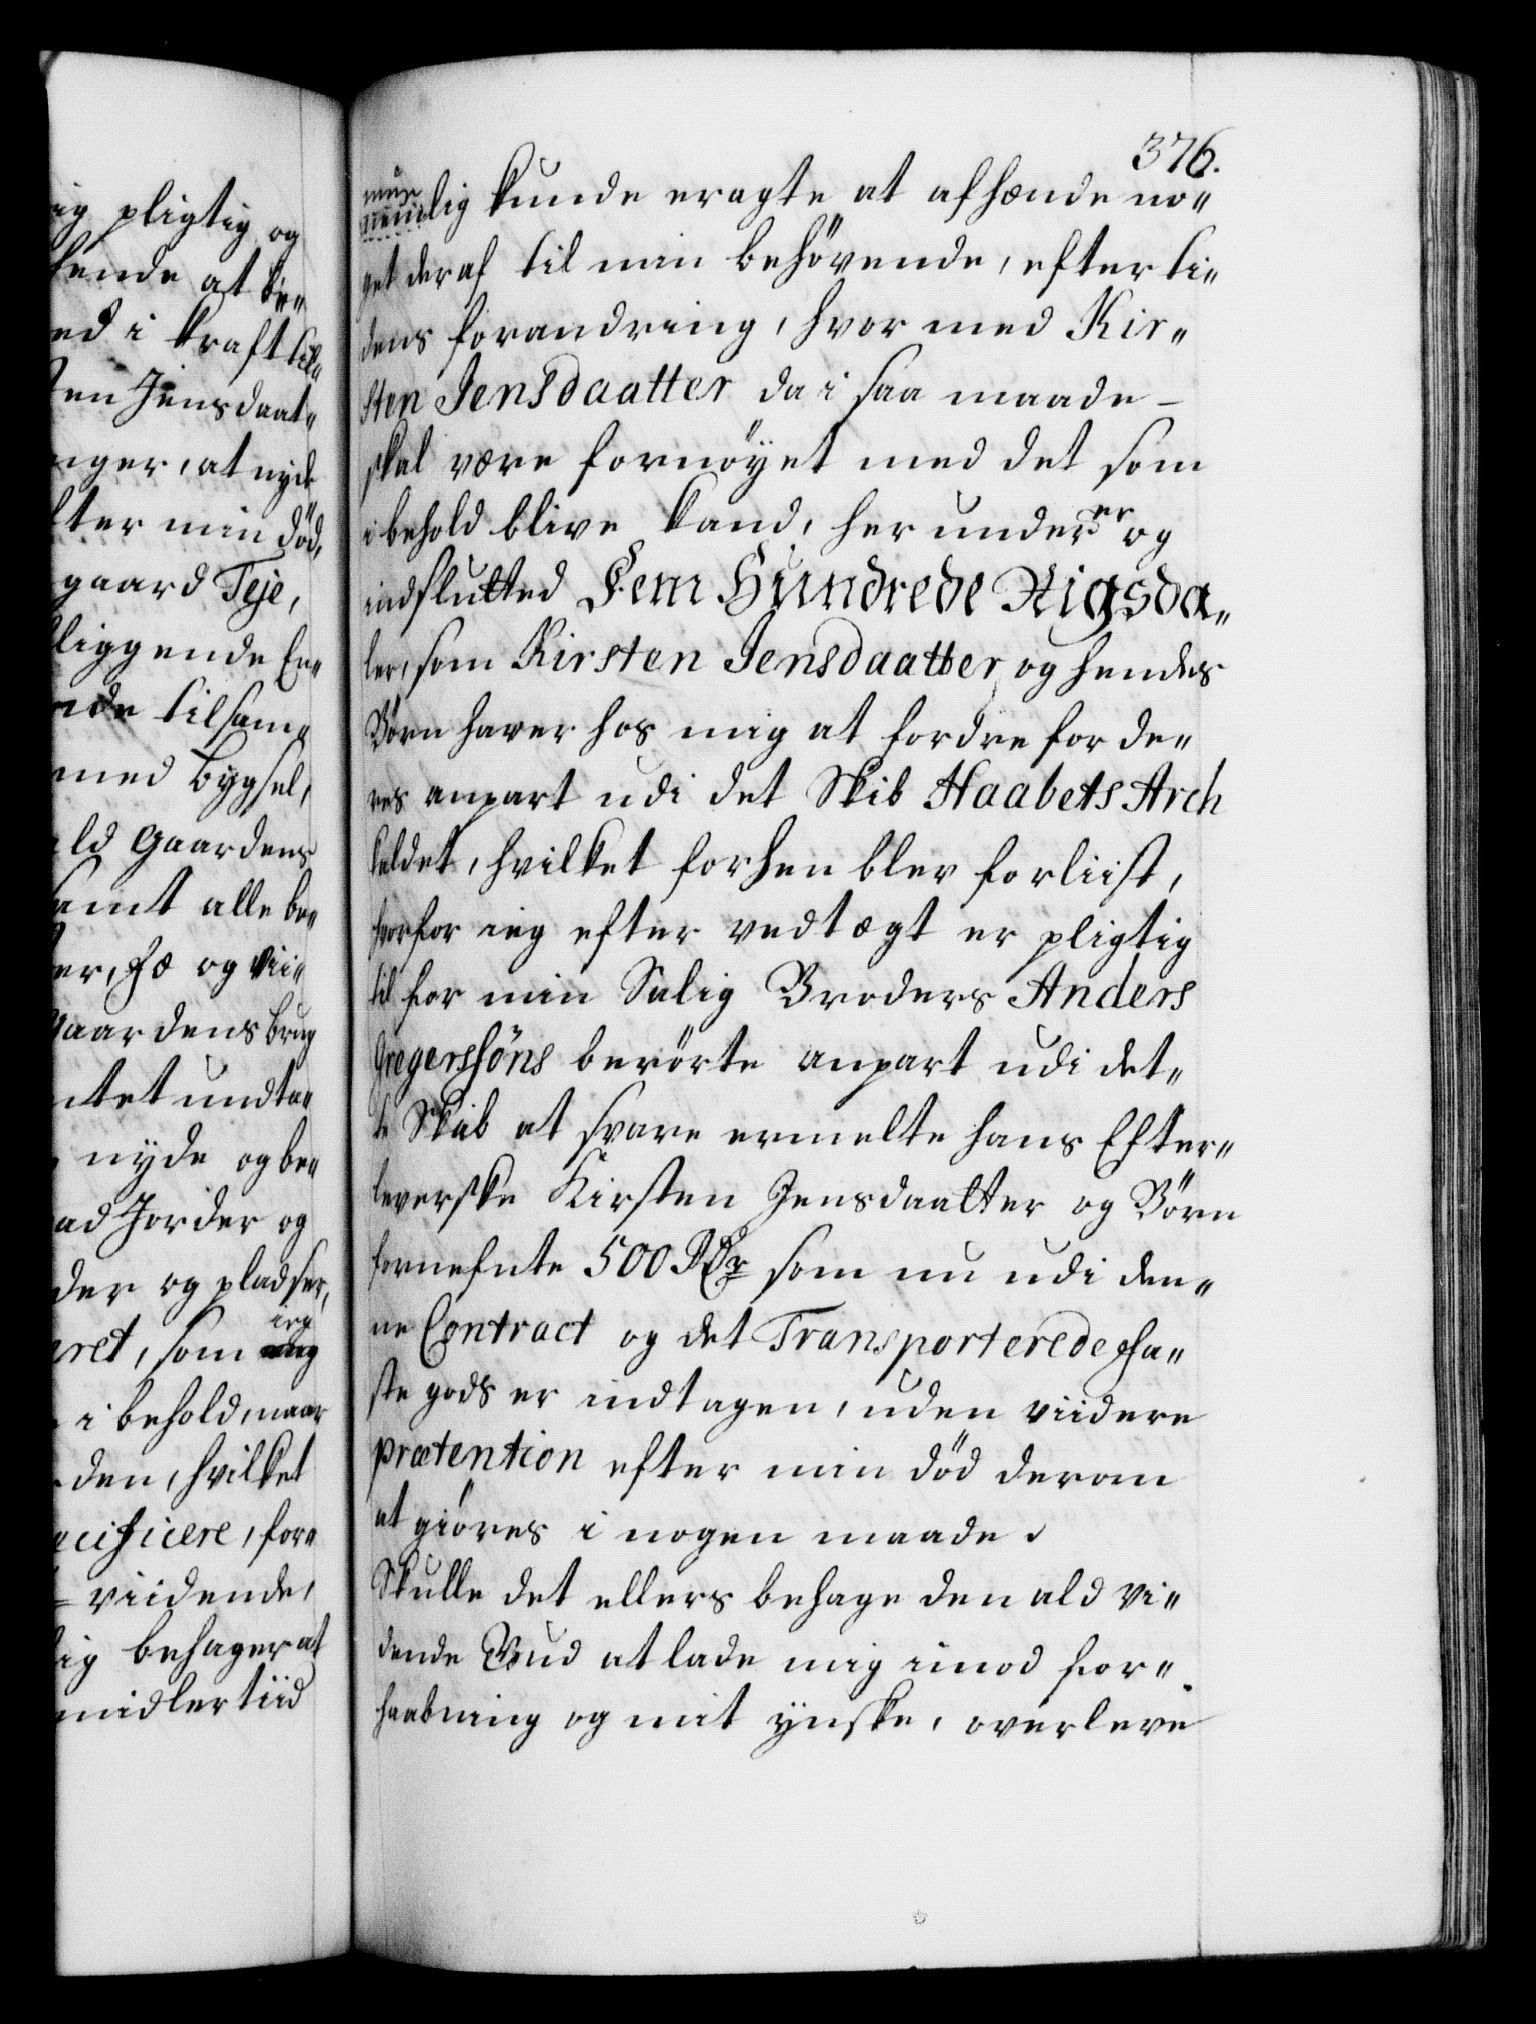 ig pligtig og
hende at be„
ed i kraft till
en Jensdaat„
nger, at nyde
fter min död,
gaard Teje,
liggende En„
nde tilsam„
med bygsel,
ald Gaardens
samt alle be„
er, Fæ og Vii„
gaardens brug
ntet undta„
nyde og be„
ad Jorder og
der og pladser,
ieg
ret, som
i behold, naar
den, hvilket
cificere, for„
viidende,
ig behager at
midlertiid
376.
mue
nemlig kunde eragte at afhænde no„
get deraf til min behövende, efter ti„
dens forandring, hvor med Kir„
sten Jensdaatter da i saa maade –
skal være fornöyet med det som
i behold blive kand, her under er og
indslutted Fem Hundrede Rigsda„
ler, som Kirsten Jensdaatter og hendes
Börn haver hos mig at fordre for de„
res anpart udi det Skib Haabets Arch
kaldet, hvilket forhen blev forliist,
hvorfor ieg efter vedtægt er pligtig
til for min Salig Broders Anders
Gregersöns berörte anpart udi det„
te Skib at svare ermelte hans Efter„
leverske Kirsten Jensdaatter og Börn
fornefnte 500 Rdr som nu udi den„
ne Contract og det Transporterede Fa„
ste gods er indtagen, uden viidere
prætention efter min död derom
at giöres i nogen maade.
Skulle det ellers behage den ald vi„
dende Gud at lade mig imod for„
haabning og mit ynske, overleve